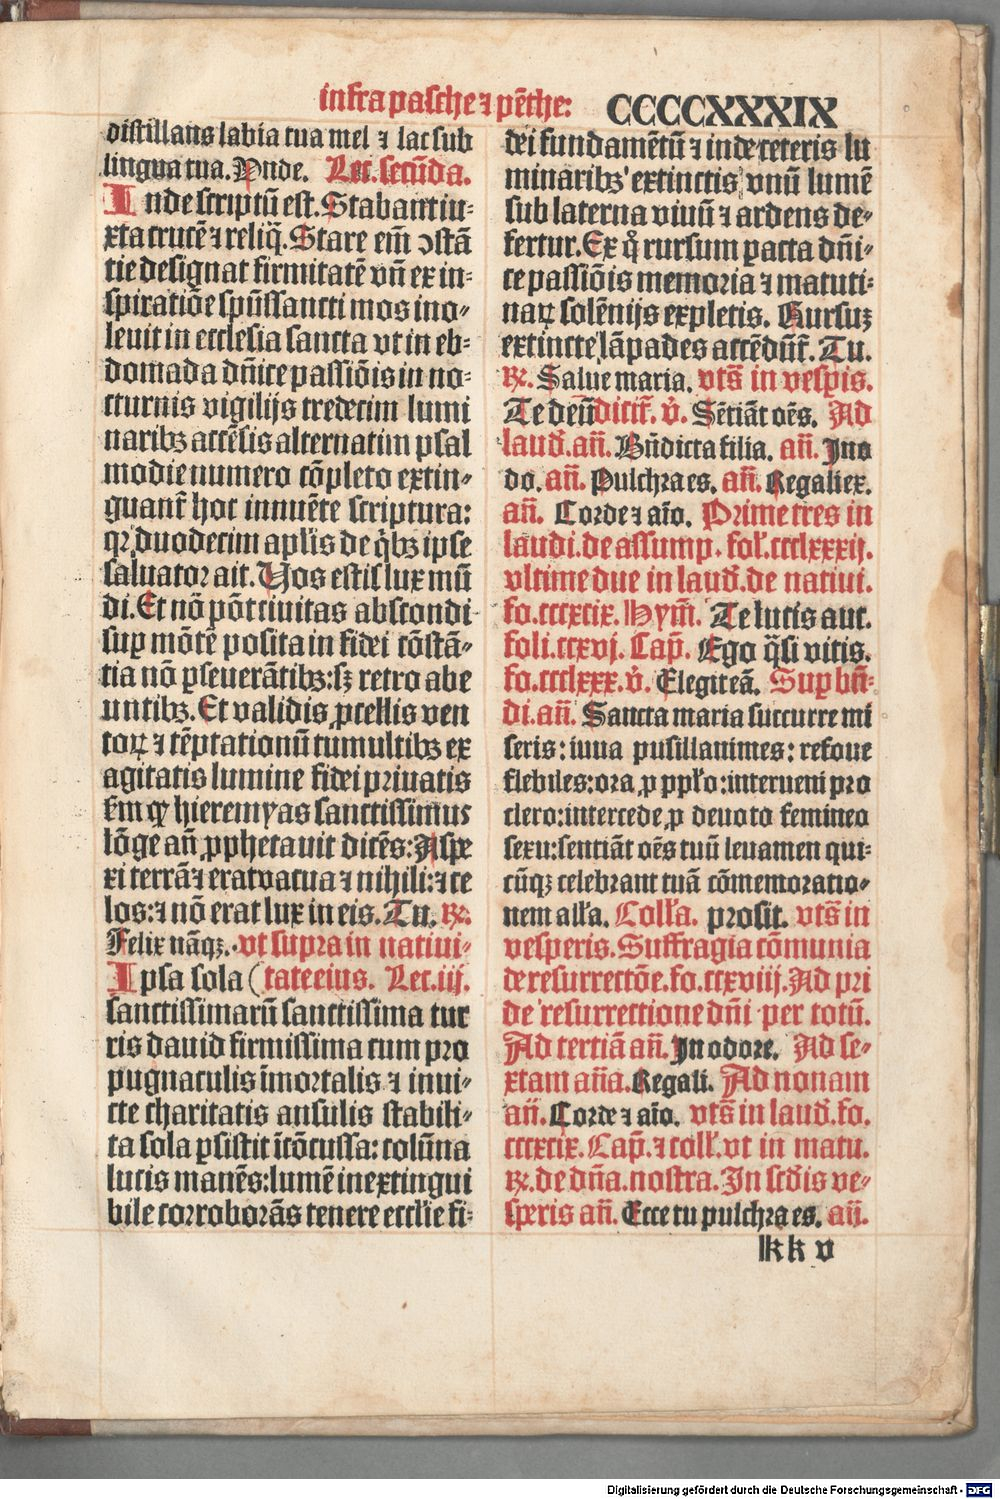 infra pasche ⁊ pēthe: CCCCXXXIX
distillans labia tua mel ⁊ lac sub
lingua tua. Vnde. Lec. secūda.
Inde scriptū est. Stabant iu⸗
xta crucē ⁊ reliq̄. Stare em̄ ↄstā
tie designat firmitatē vn̄ ex in⸗
spiratiōe spūssancti mos ino⸗
leuit in ecclesia sancta vt in eb⸗
domada dn̄ice passiōis in no⸗
cturnis vigilijs tredecim lumi
naribꝫ accēsis alternatim psal
modie numero cōpleto extin⸗
guant̄ hoc innuēte scriptura:
qꝛ duodecim apl̄is de q̇bꝫ ipse
saluator ait. Uos estis lux mū
di. Et nō pōt ciuitas abscondi
suꝑ mōtē posita in fidei cōstā⸗
tia nō ꝑseuerātibꝫ: sꝫ retro abe
untibꝫ. Et validis ꝓcellis ven
toꝝ ⁊ tēptationū tumultibꝫ ex
agitatis lumine fidei priuatis
fm̄ qꝫ hieremyas sanctissimus
lōge an̄ ꝓphetauit dicēs: Aspe
xi terrā ⁊ erat vacua ⁊ nihili: ⁊ ce
los: ⁊ nō erat lux in eis. Tu. ℟.
Felix nāqꝫ. vt supra in natiui⸗
Ipsa sola (tate eius. Lec. iij.
sanctissimarū sanctissima tur
ris dauid firmissima cum pro
pugnaculis īmortalis ⁊ inui⸗
cte charitatis ansulis stabili⸗
ta sola ꝑsistit īcōcussa: colūna
lucis manēs: lumē inextingui
bile corroborās tenere ecclie fi⸗
dei fundamētū ⁊ inde ceteris lu
minaribꝫ extinctis vnū lumē
sub laterna viuū ⁊ ardens de⸗
fertur. Ex q̊ rursum ꝑacta dn̄i⸗
ce passiōis memoria ⁊ matuti⸗
naꝝ solēnijs expletis. Rursuꝫ
extincte lāpades accēdūt̄. Tu.
℟. Salue maria. vts̄ in vespis.
Te deū dicit̄. v̇. Sētiāt oēs. Ad
laud̄. an̄. Bn̄dicta filia. an̄. In o
do. an̄. Pulchra es. an̄. Regali ex.
an̄. Corde ⁊ aīo. Prime tres in
laudi. de assump. fol̄. ccclxxxij.
vltime due in laud̄. de natiui.
fo. cccxcix. Hym̄. Te lucis auc.
foli. ccxvj. Cap̄. Ego q̄si vitis.
fo. ccclxxx. v̇. Elegit eā. Suꝑ bn̄⸗
di. an̄. Sancta maria succurre mi
seris: iuua pusillanimes: refoue
flebiles: ora ꝓ ppl̄o: interueni pro
clero: intercede ꝓ deuoto femineo
sexu: sentiāt oēs tuū leuamen qui⸗
cūqꝫ celebrant tuā cōmemoratio⸗
nem all̄a. Coll̄a. prosit. vts̄ in
vesperis. Suffragia cōmunia
de resurrectōe. fo. ccxviij. Ad pri
de resurrectione dn̄i per totū.
Ad tertiā an̄. In odore. Ad se⸗
xtam an̄a. Regali. Ad nonam
an̄. Corde ⁊ aīo. vts̄ in laud̄. fo.
cccxcix. Cap̄. ⁊ coll̄. vt in matu.
℟. de dn̄a. nostra. In scd̄is ve⸗
speris an̄. Ecce tu pulchra es. an̄.
kk v
Digitalisierung gefördert durch die Deutsche Forschungsgemeinschaft - DFG